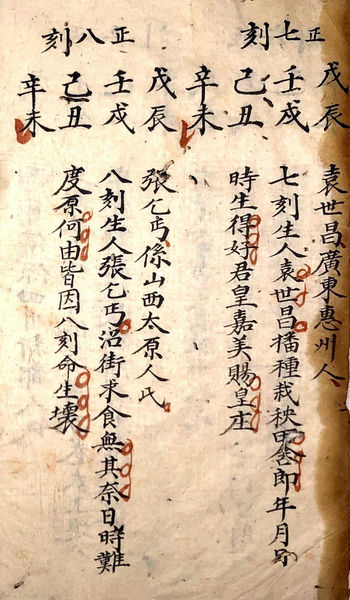 正七刻
戊辰　袁世昌廣東惠州人
壬戌　七刻生人袁世昌播種栽秧田舍郎年月
己丑　時生得好君皇嘉美賜皇庄
辛未
正八刻
戊辰　張乞丐係山西太原人氏
壬戌　八刻生人張乞丐沿街求食無其奈日時難
己丑　度原何由皆因八刻命生壞
辛未